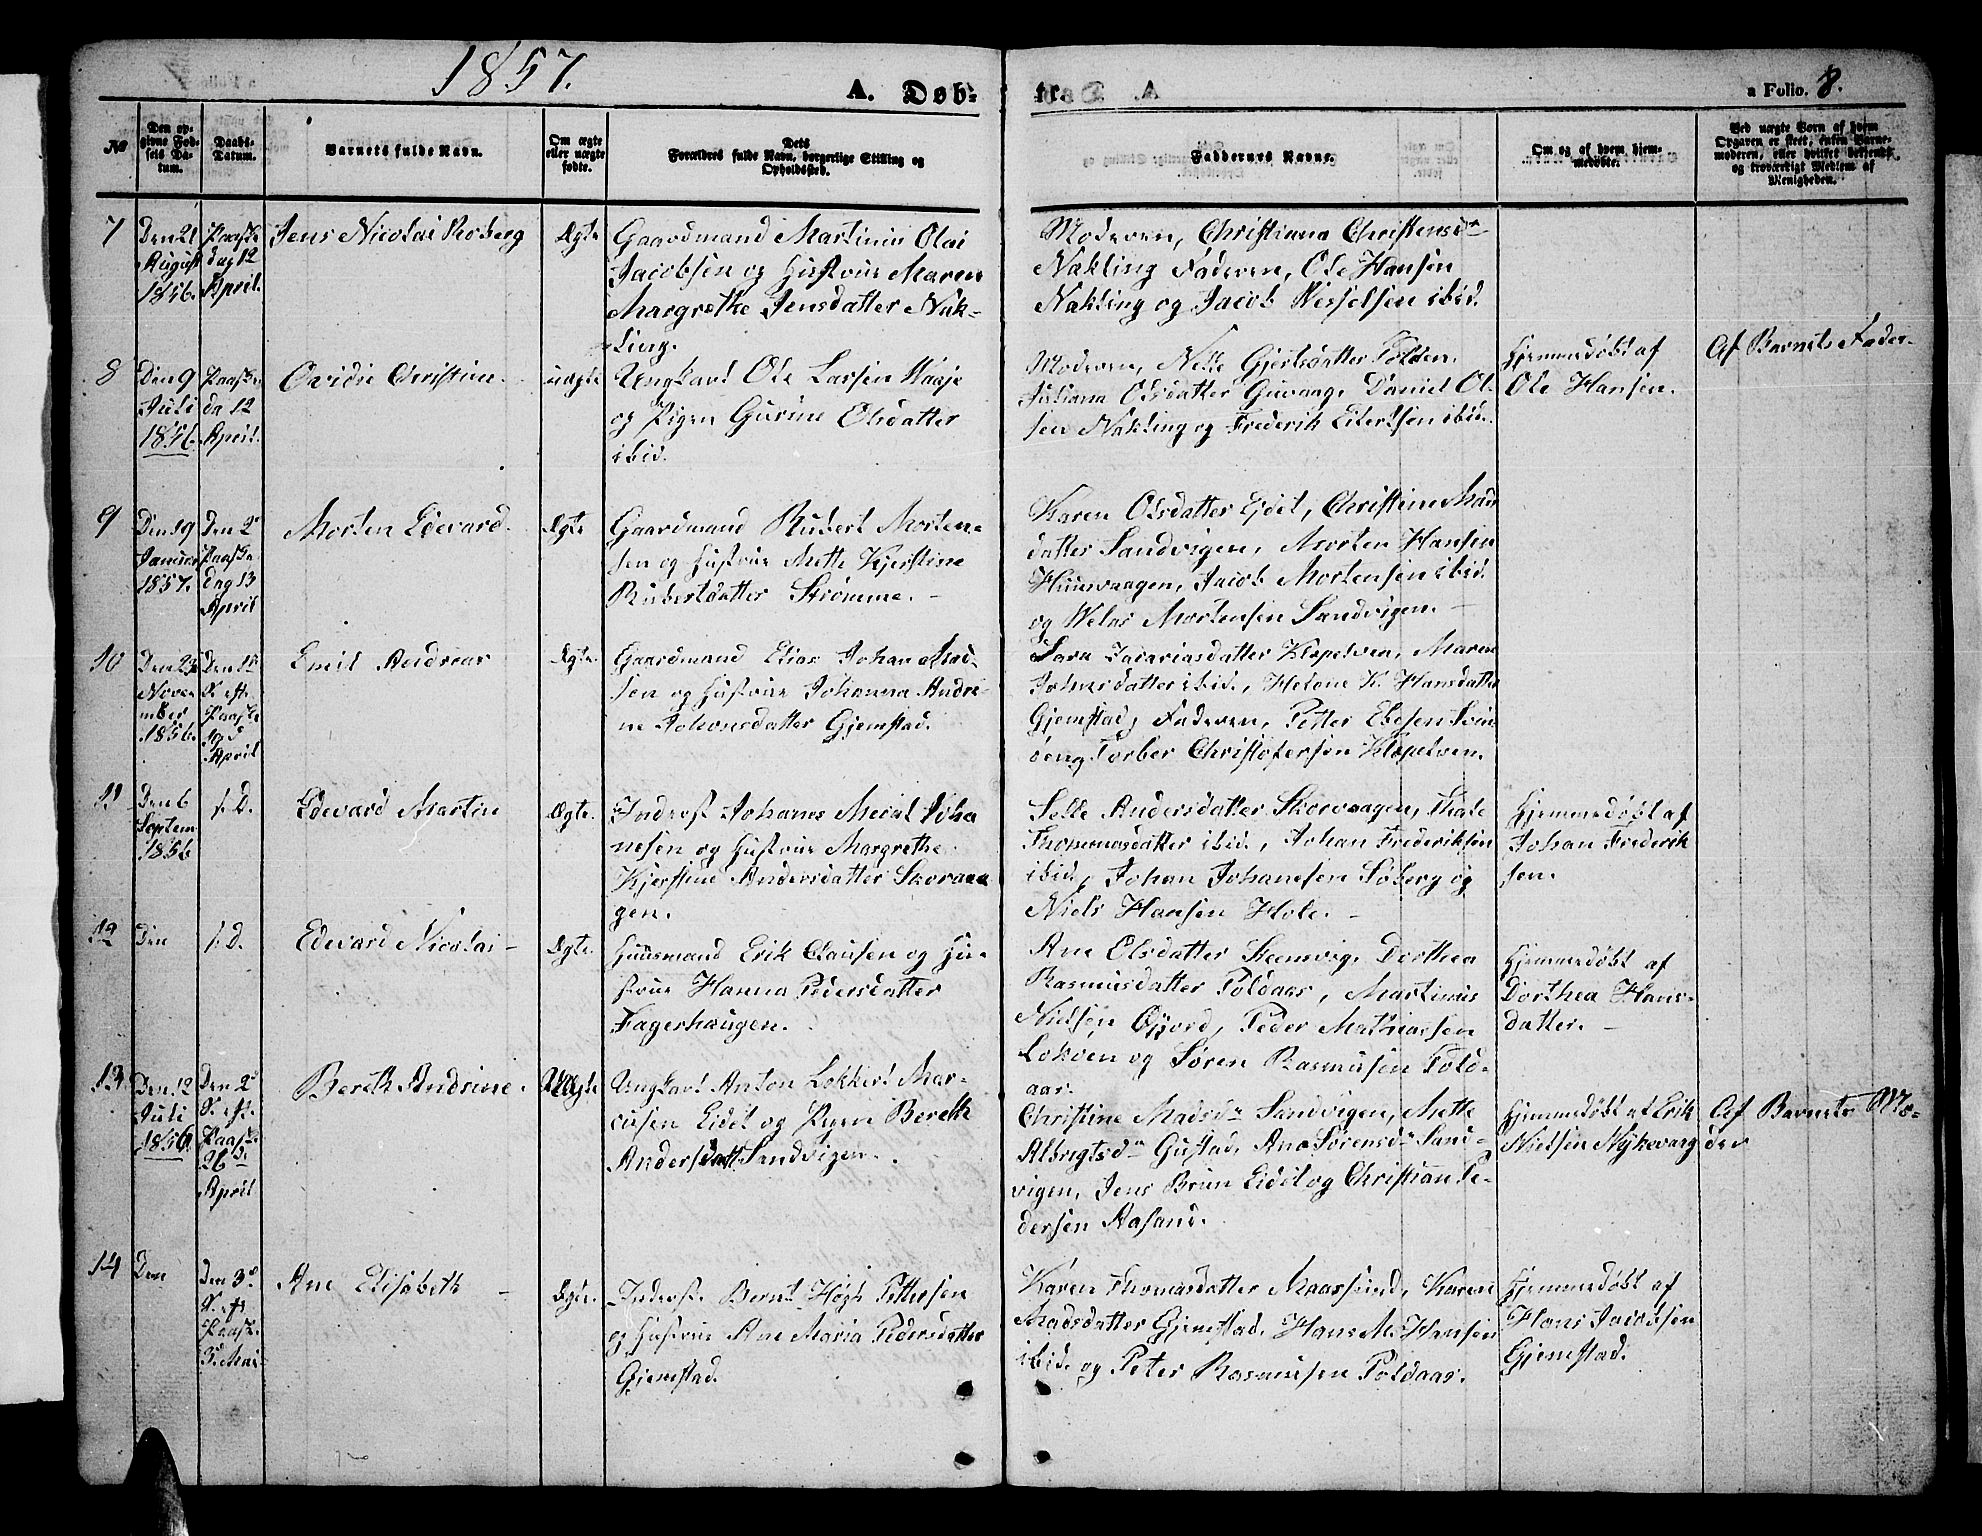 1857.
A. Døb-
te.
a Folio. 8.
No
Den op-
givne Fød-
sels Da-
tum.
Daabs-
Datum.
Barnets fulde Navn.
Om ægte
eller uægte
fødte.
Dets
Forældres fulde Navn, borgerlige Stilling og
Opholdssted.
Faddernes Navne.
Om og af hvem hjem-
medøbte.
Ved uægte Børn af hvem
Opgaven er skeet, enten Barne-
moderen, eller hvilket bekjendt
og troværdigt Medlem af
Menigheden.
7
Den 21
August
1856.
Paaske
dag 12
April.
Jens Nicolai Roberg
Ægte
Gaardmand Martinus Olai
Jacobsen og Hustrue Maren
Margrethe Jensdatter Nak-
ling.
Moderen, Christiana Christensdtr
Nakling Faderen, Ole Hansen
Nakling og Jacob Wesselsen ibid.
8
Den 9
Juli
1856.
Paaske
da 12
April.
Ovidie Christian
uægte
Ungkarl Ole Larsen
og Pigen Gurine Olsdatter
ibid.
Moderen, Gjertsdatter Folden
Juliana Olsdatter Daniel Ol-
sen Nakling og Frederik Eilertsen ibid.
Hjemmedøbt af
Ole Hansen.
Af Barnets Fader.
9
Den 19
Januar
1857.
Den 2
Paaske
dag 13
April
Morten Edevard.
Ægte
Gaardmand Rubert Morten-
sen og Hustrue Mette Kjerstine
Rubertsdatter Strømme.
Karen Olsdatter Eidet, Christine Mads
datter Sandvigen, Morten Hansen
Huusvaagen, Jacob Mortensen ibid.
og Mortensen Sandvigen.
10
Den 23
Novem
mber
1856.
S. eft.
Paaske
April
Emil Andreas
Ægte.
Gaardmand Elias Johan
sen og Hustrue Johanna Andri-
ne Johansdatter Gjemstad.
Sara Zacariasdatter Maren
Johnsdatter ibid, Helene K. Hansdatter
Gjemstad, Faderen, Petter Ebesen
og Torber Christofersen
11
Den 6
Septem
1856
s. D.
Edevard Martin
Ægte.
Inderst Johanes Meial Joha
nesen og Hustrue Margrethe
Kjerstine Andersdatter Skovaa
gen.
Selle Andersdatter Skorvaagen,
Thommasdatter ibid, Johan Frederiksen
ibid, Johan Johansen Søberg og
Niels Hansen Hole.
Hjemmedøbt af
Johan Frederik
sen.
12
Den
s. D.
Edevard Nicolai
Ægte.
Huusmand Erik Clausen og Hu-
strue Hanna Pedersdatter
Fagerhaugen.
Ane Olsdatter Steensvig, Dorthea
Rasmusdatter Foldaas, Martinus
Nielsen Peder Mathiassen
og Søren Rasmusen Fold-
aas.
Hjemmedøbt af
Dorthea Hans-
datter.
13
Den 12
Juli
1856.
Den 2
S. eft.
Paask.
26de
April
Bereth Andsine.
Uægte
Ungkarl Anton Lekkert Mar-
cusen Eidet og Pigen Bereth
Andersdatt. Sandvigen.
Christine Madsdtr Sandvigen, Mette
Albrigtsdtr Gustad, Ane Sørensdtr Sand-
vigen, Jens Brun Eidet og Christian Pe-
dersen Aasand.
Hjemmedøbt af Erik
Nielsen Nykevaag
Af Barnets Mo-
der
14
Den
Den 3d
S. eft.
Paask.
3d Mai
Ane Elisabeth
Ægte.
Inderst Bernt Høgh Pettersen
og Hustrue Ane Maria Pedersdatter
Gjemstad.
Karen Thomasdatter Maassund, Karen
Madsdatter Gjemstad, Hans M. Hansen
ibid. og Peter Rasmusen Foldaas.
Hjemmedøbt af
Hans Jacobsen
Gjemstad.